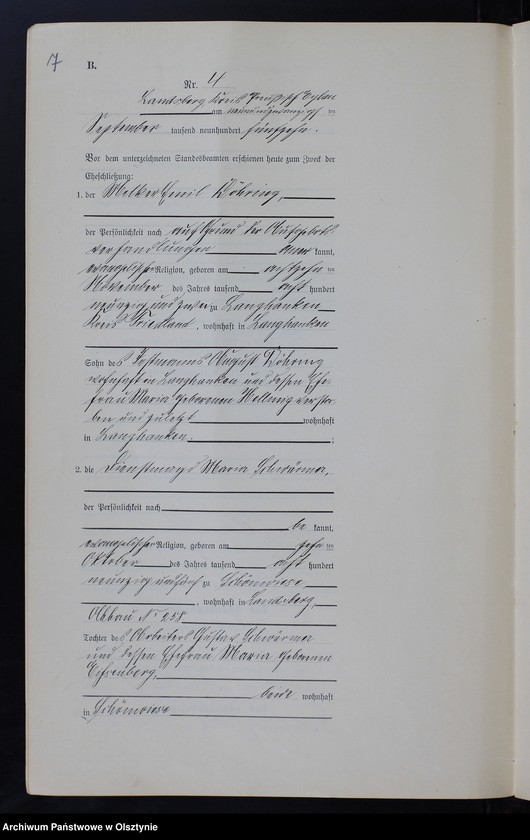 7
B.
Nr. 4
Landsberg Kreis Preuß. Eylau
am neunundzwanzigsten
September tausend neunhundert fünfzehn.
Vor dem unterzeichneten Standesbeamten erschienen heute zum Zweck der
Eheschließung:
1. der Melker Emil Döhring,
der Persönlichkeit nach auf Grund der Aufgebots
verhandlungen aner kannt,
evangelischer Religion, geboren am achtzehn ten
November des Jahres tausend acht hundert
neunzig und zwei zu Langhanken
Kreis Friedland, wohnhaft in Langhanken
Sohn des August Döhring
wohnhaft in Langhanken und dessen Ehe
frau Maria geborenen verstor
ben und zuletzt wohnhaft
in Langhanken.
2. die Dienstmagd Maria Schwärmer,
der Persönlichkeit nach
be kannt,
evangelischer Religion, geboren am zehn ten
Oktober des Jahres tausend acht hundert
neunzig zu Schönwiese
, wohnhaft in Landsberg,
Abbau No 258
Tochter des Arbeiters Gustav Schwärmer
und dessen Ehefrau Maria geborenen
beide wohnhaft
in Schönwiese
Archiwum Państwowe w Olsztynie